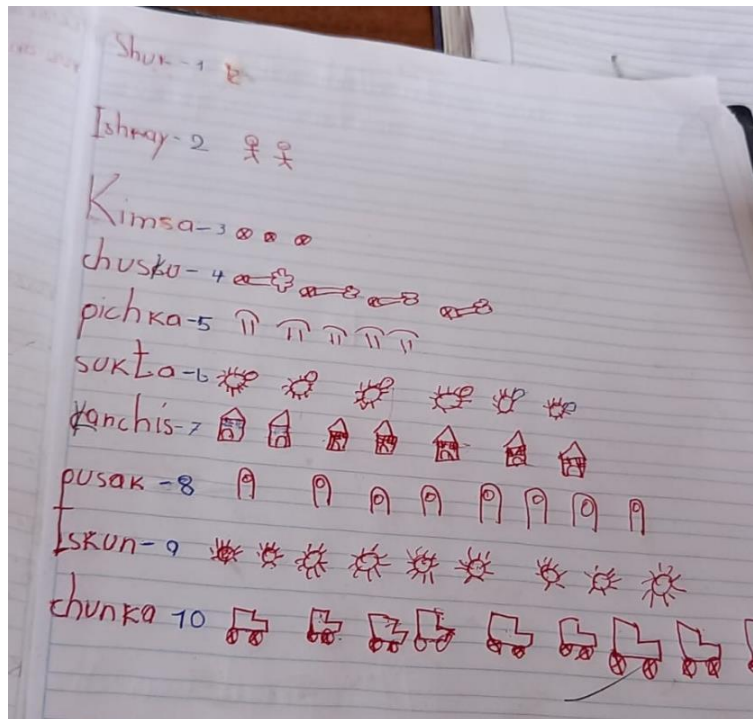 Shuk - 1
Ishkay - 2
Kimsa - 3
chusku - 4
pichka - 5
sukta - 6
kanchis - 7
pusak - 8
Iskun - 9
chunka 10